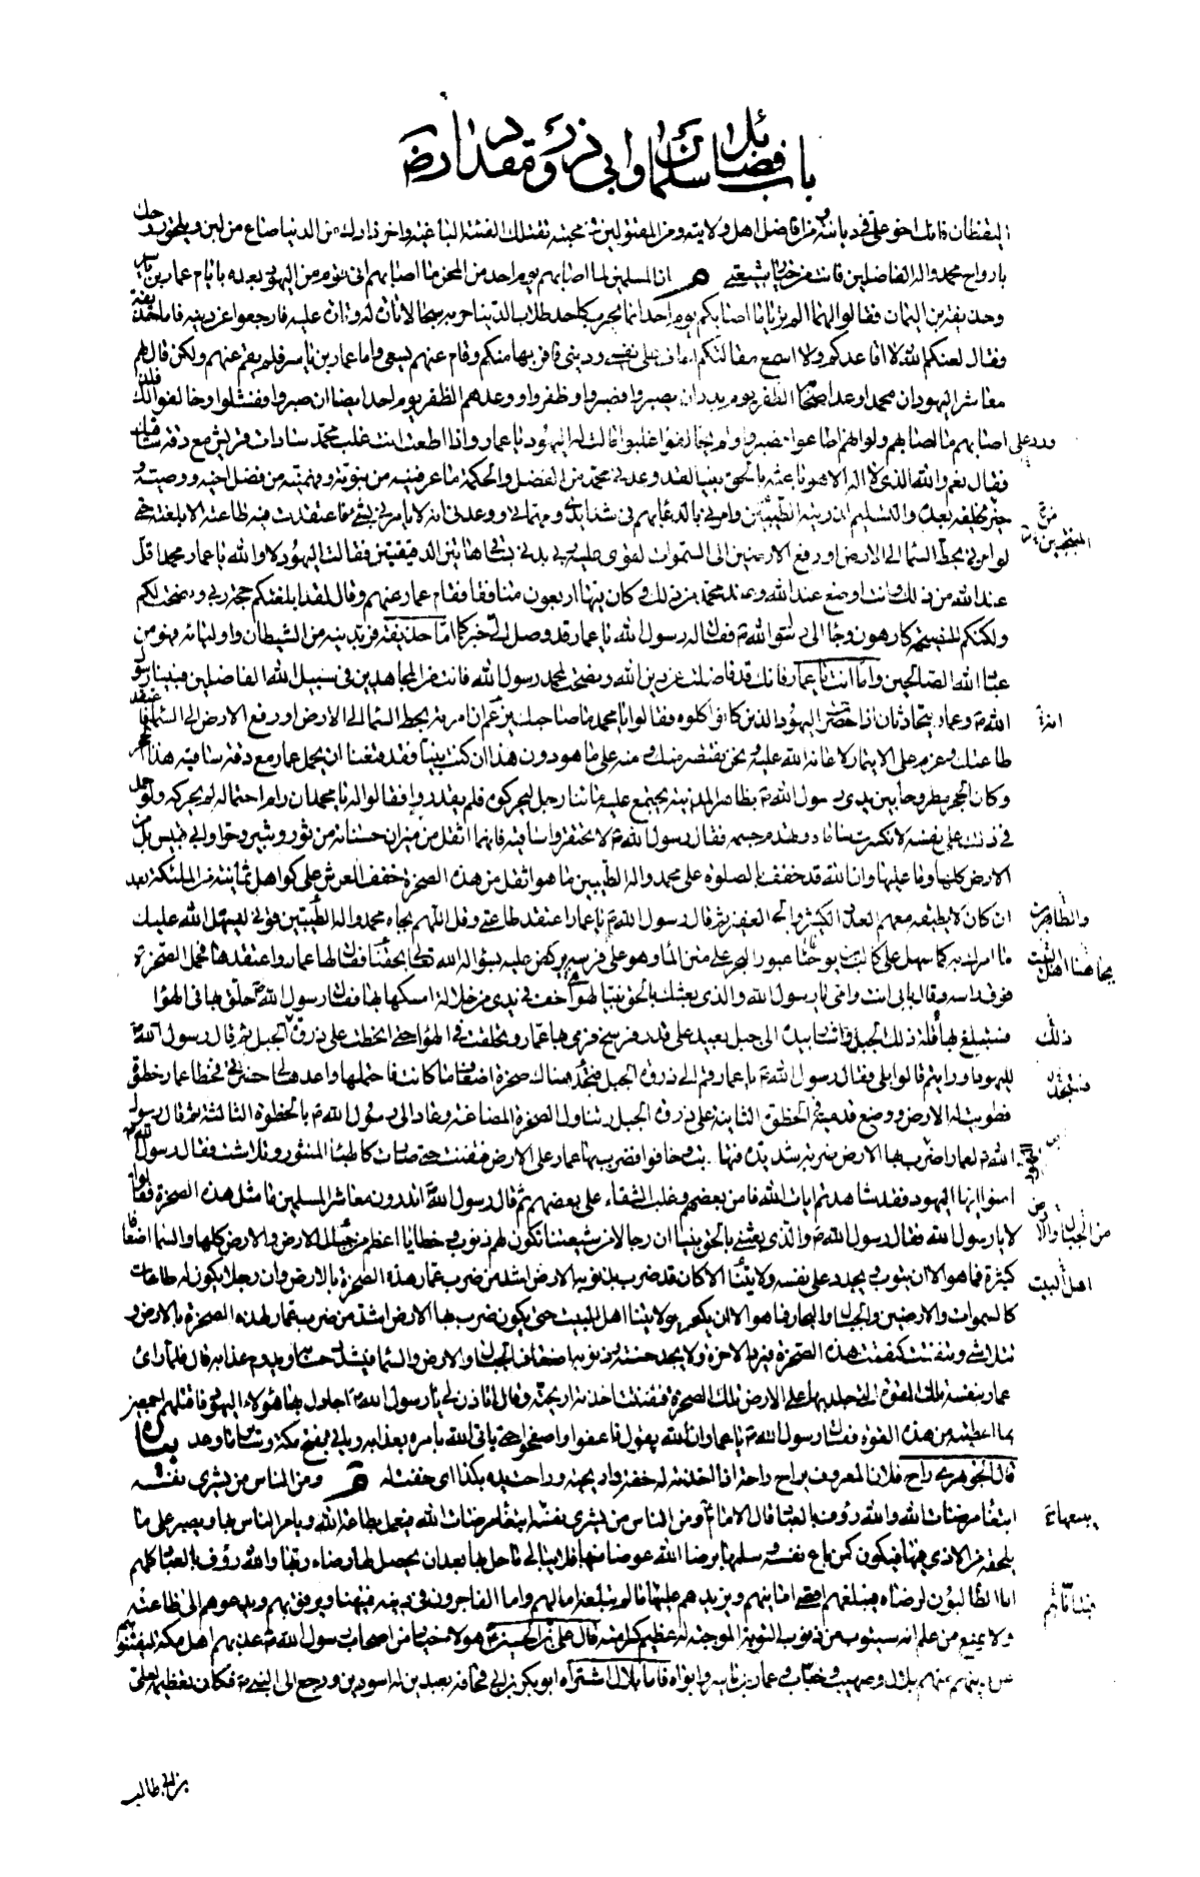 باب فضائل سلمان وابي ذر ومقداد رض
اليقظان فانك اخو علي في ديانته ومن افاضل اهل ولايته ومن المقتولين في محبته تقتلك الفئة الباغية واخر زادك من الدنيا صاع من لبن ويلحق روحك
بارواح محمد واله الفاضلين فانت من خيار شيعتي م ان المسلمين لما اصابهم يوم احد من المحن ما اصابهم اتى قوم من اليهود بعده بايام عمار بن ياسر
وحذيفة بن اليمان فقالوا لهما الم تريا ما اصابكم يوم احد انما يحرب كاحد طلاب الدنيا حربه سجالا تارة له وتارة عليه فارجعوا عن دينه فاما حذيفة
فقال لعنكم الله لا اقاعدكم ولا اسمع مقالتكم اخاف على نفسي وديني فافر بهما منكم وقام عنهم يسعى واما عمار بن ياسر فلم يقم عنهم ولكن قال لهم
معاشر اليهود ان محمدا وعد اصحابه الظفر يوم بدر ان يصبروا فصبروا وظفروا ووعدهم الظفر يوم احد ايضا ان صبروا ففشلوا وخالفوا فلذلك
اصابهم ما اصابهم ولو انهم اطاعوا فصبروا ولم يخالفوا غلبوا قالت له اليهود يا عمار واذا اطعت انت غلب محمد سادات قريش مع دقة ساقيك
فقال نعم والله الذي لا اله الا هو باعثه بالحق نبيا لقد وعدني محمد من الفضل والحكمة ما عرفنيه من نبوته وفهمنيه من فضل اخيه ووصيه و
خير من يخلفه بعده والتسليم لذريته الطيبين وامرني بالدعاء بهم في شدائدي ومهماتي ووعدني انه لا يامرني بشيء فاعتقدت فيه طاعته الا بلغته حتى
لو امرني بحط السماء الى الارض او رفع الارضين الى السموات لقوى عليه ربي بدني بساقي هاتين الدقيقتين فقالت اليهود لا والله يا عمار محمد اقل
عند الله من ذلك وانت اوضع عند الله وعند محمد من ذلك وكان فيها اربعون منافقا فقام عمار عنهم وقال لقد ابلغتكم حجة ربي ونصحت لكم
ولكنكم للنصيحة كارهون وجاء الى رسول الله ص فقال له رسول الله يا عمار قد وصل الي خبركما اما حذيفة فر بدينه من الشيطان واوليائه فهو من
عباد الله الصالحين واما انت يا عمار فانك قد ناضلت عن دين الله ونصحت لمحمد رسول الله فانت من المجاهدين في سبيل الله الفاضلين فبينا رسول
الله ص وعمار يتحادثان اذا حضرت اليهود الذين كانوا كلموه فقالوا يا محمد ها صاحبك يزعم ان امرته بحط السماء الى الارض او رفع الارض الى السماء فاعتقد
طاعتك وعزم على الايتمار لاعانه الله عليه ونحن نقتصر منك ومنه على ما هو دون هذا ان كنت نبيا فقد قنعنا ان يحمل عمار مع دقة ساقيه هذا الحجر
وكان الحجر مطروحا بين يدي رسول الله ص بظاهر المدينة يجتمع عليه مائتا رجل ليحركوه فلم يقدروا فقالوا له يا محمد ان رام احتماله لم يحركه ولو حمل
في ذلك على نفسه لانكسرت ساقاه وتهدم جسمه فقال رسول الله ص لا تحتقروا ساقيه فانهما اثقل من ميزان حسناته من ثور وثبير وحراء وابي قبيس بل من
الارض كلها وما عليها وان الله قد خفف بالصلوة على محمد واله الطيبين ما هو اثقل من هذه الصخرة خفف العرش على كواهل ثمانية من الملئكة بعد
ان كان لا يطيقه معهم العدد الكثير والجم الغفير ثم قال رسول الله ص يا عمار اعتقد طاعتي وقل اللهم بجاه محمد واله الطيبين قوني ليسهل الله عليك
ما امرك به كما سهل على كالب بن يوحنا عبور البحر على متن الماء وهو على فرسه يركض عليه بسؤاله الله تعالى بحقنا فقالها عمار واعتقدها فحمل الصخرة
فوق راسه وقال بابي انت وامي يا رسول الله والذي بعثك بالحق نبيا لهي اخف في يدي من خلالة امسكها بها فقال رسول الله ص حلق بها في الهواء
فستبلغ بها قلة ذلك الجبل واشار بيده الى جبل بعيد على قدر فرسخ فرمى بها عمار وتحلقت في الهواء حتى انحطت على ذروة الجبل ثم قال رسول الله ص
لليهود او رايتم قالوا بلى فقال رسول الله ص يا عمار قم الى ذروة الجبل فتجد هناك صخرة اضعاف ما كانت فاحتملها واعدها الى حضرتي فخطا عمار خطوة
فطويت له الارض ووضع قدميه في الخطوة الثانية على ذروة الجبل وتناول الصخرة المضاعفة وعاد الى رسول الله ص بالخطوة الثالثة ثم قال رسول
الله ص لعمار اضرب بها الارض ضربة شديدة فتهاربت وخافوا فضرب بها عمار على الارض فتفتتت حتى صارت كالهباء المنثور وتلاشت فقال رسول الله ص
امنوا ايها اليهود فقد شاهدتم ايات الله فامن بعضهم وغلب الشقاء على بعضهم ثم قال رسول الله ص اتدرون معاشر المسلمين ما مثل هذه الصخرة فقالوا
لا يا رسول الله فقال رسول الله ص والذي بعثني بالحق نبيا ان رجلا من شيعتنا تكون لهم ذنوب وخطايا اعظم من جبال الارض والارض كلها والسماء اضعافا
كثيرة فما هو الا ان يتوب ويجدد على نفسه ولايتنا الا كان قد ضرب بذنوبه الارض اشد من ضرب عمار هذه الصخرة بالارض وان رجلا يكون له طاعات
كالسموات والارضين والجبال والبحار فما هو الا ان يكفر بولايتنا اهل البيت حتى يكون ضرب بها الارض اشد من ضرب عمار لهذه الصخرة بالارض و
تتلاشى وتتفتت كتفتت هذه الصخرة فيرد الاخرة ولا يجد حسنة وذنوبه اضعاف الجبال والارض والسماء فيشدد حسابه ويدوم عذابه قال فلما راى
عمار بنفسه تلك القوة التي جلد بها على الارض تلك الصخرة فتفتتت اخذته اريحية وقال اتاذن لي يا رسول الله ص اجادل بها هؤلاء اليهود فاقتلهم اجمعين
بما اعطيته من هذه القوة فقال رسول الله ص يا عمار ان الله يقول فاعفوا واصفحوا حتى ياتي الله بامره بعذابه وياتي بفتح مكة وسائر ما وعد بيان
قال الجوهري راح فلان للمعروف يراح راحة اذا اخذته له خفة واريحية وراحت يده بكذا اي خفت له م ومن الناس من يشرى نفسه
ابتغاء مرضات الله والله رؤف بالعباد قال الامام ع ومن الناس من يشرى نفسه ابتغاء مرضات الله فيعمل بطاعة الله ويامر الناس بها ويصبر على ما
يلحقه من الاذى فيها فيكون كمن باع نفسه وسلمها برضا الله عوضا منها فلا يبالي ما حل بها بعد ان يحصل لها رضاء ربها والله رؤف بالعباد كلهم
اما الطالبون لرضاه فيبلغهم اقصى امانيهم ويزيدهم عليها ما لم تبلغه امالهم واما الفاجرون في دينه فيتاناهم ويرفق بهم ويدعوهم الى طاعته
ولا يمنع من علم انه سيتوب من ذنوبه التوبة الموجبة له عظيم كرامته قال علي بن الحسين ع هؤلاء خيار من اصحاب رسول الله ص عذبهم اهل مكة ليفتنوهم
عن دينهم منهم بلال وصهيب وخباب وعمار بن ياسر وابواه فاما بلال اشتراه ابو بكر بن ابي قحافة بعبدين له اسودين ورجع الى النبي ص فكان تعظيمه لعلي
وردد على
المنتجبين
والطاهرين
بجاهنا اهل البيت
ذلك
من الجبال والارض
اهل البيت
بن ابي طالب